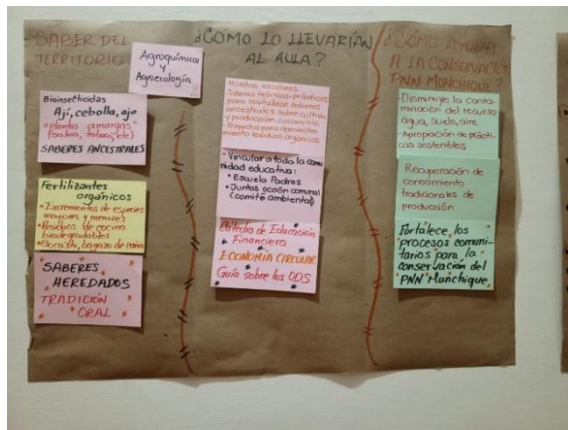 SABER DEL
TERRITORIO
Agroquímicos
y
Agroecología
Bioinsecticidas
Ají, cebolla, ajo
plantas amargas
SABERES ANCESTRALES
Fertilizantes
orgánicos
• Excrementos de especies
mayores y menores
• Residuos de cocina
biodegradables
• Bocashi, bagazo de caña
SABERES
HEREDADOS
TRADICIÓN
ORAL
¿CÓMO LO LLEVARÍAN
AL AULA?
- Huertas escolares
- Talleres teóricos-prácticos
para revitalizar saberes
ancestrales sobre cultivo
y producción sostenible
- Proyectos para aprovecha-
miento residuos orgánicos
- Vincular a toda la comu
nidad educativa:
• Escuela Padres
• Juntas acción comunal
(comité ambiental)
Cátedra de Educación
Financiera
ECONOMÍA CIRCULAR
Guía sobre los ODS
¿CÓMO AYUDA
A LA CONSERVACIÓN
PNN MUNCHIQUE?
- Disminuye la conta-
minación del recurso
agua, suelo, aire.
- Apropiación de prácti-
cas sostenibles
Recuperación de
conocimiento
tradicionales de
producción
Fortalece los
procesos comuni-
tarios para la
conservación del
PNN Munchique